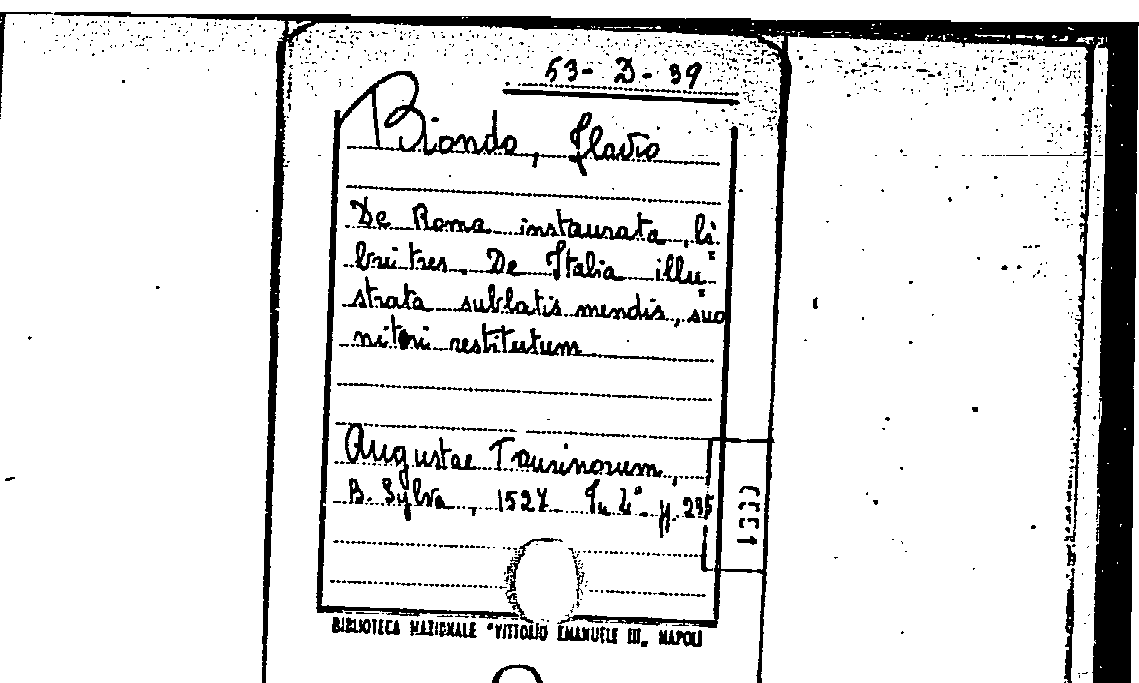 53-D-39
Biondo, Flavio
De Roma instaurata, li=
bri tres. De Italia illu=
strata sublatis mendis, suo
nitori restitutum
Augustae Taurinorum,
B. Sylva, 1527 In 4° pp. 235
BIBLIOTECA NAZIONALE "VITTORIO EMANUELE III„ NAPOLI